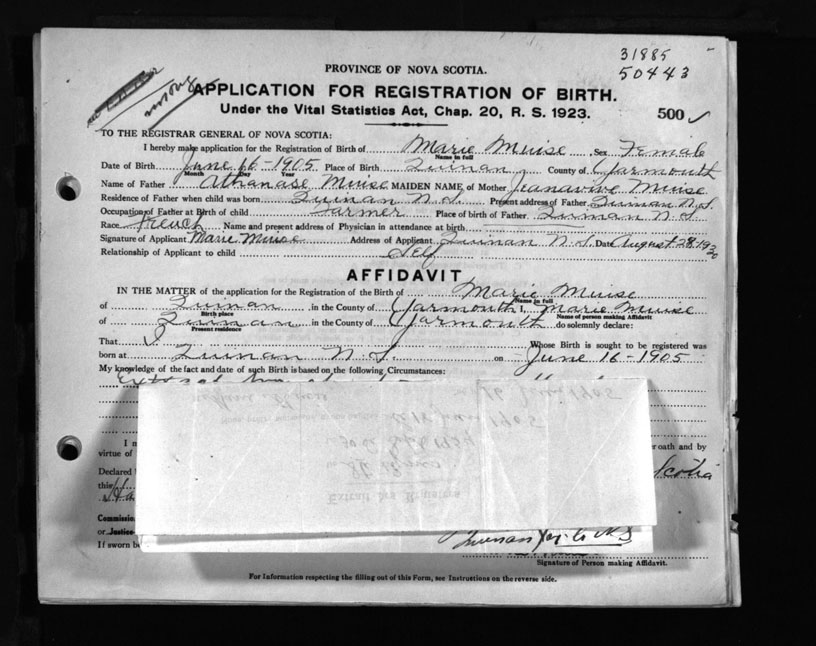 31885
50443
PROVINCE OF NOVA SCOTIA.
APPLICATION FOR REGISTRATION OF BIRTH.
Under the Vital Statistics Act, Chap. 20, R. S. 1923.
500
TO THE REGISTRAR GENERAL OF NOVA SCOTIA:
I hereby make application for the Registration of Birth of Marie Muise Sex Female
Name in full
Date of Birth June 16-1905 Place of Birth Quinan County of Yarmouth
Month Day Year
Name of Father Athanase Muise MAIDEN NAME of Mother Jeanavive Muise
Residence of Father when child was born Quinan N.S. Present address of Father Quinan N.S.
Occupation of Father at Birth of child Farmer Place of birth of Father Quinan N.S.
Race French Name and present address of Physician in attendance at birth
Signature of Applicant Marie Muise Address of Applicant Quinan N.S. Date August 28-1930
Relationship of Applicant to child Self
AFFIDAVIT
IN THE MATTER of the application for the Registration of the Birth of Marie Muise
Name in full
of Quinan in the County of Yarmouth I, Marie Muise
Birth place Name of person making Affidavit
of Quinan in the County of Yarmouth do solemnly declare:
Present residence
That I Whose Birth is sought to be registered was
born at Quinan N.S. on June 16-1905
My knowledge of the fact and date of such Birth is based on the following Circumstances:
I m
er oath and by
virtue of
Declared Scotia
this
Commission
or Justice
If sworn be
Quinan Yar. Co N.S
Signature of Person making Affidavit.
For Information respecting the filling out of this Form, see Instructions on the reverse side.